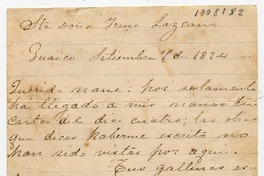 1998182
Sta Doña Irene Lazcano
Guasco, Setiembre 7 de 18
Querida nane: por solamente
ha llegado a mis manos tu
carta del dia cuatro; las otras
que dices haberme escrito no
han sido vistas por aqui.
Tus gallinas es